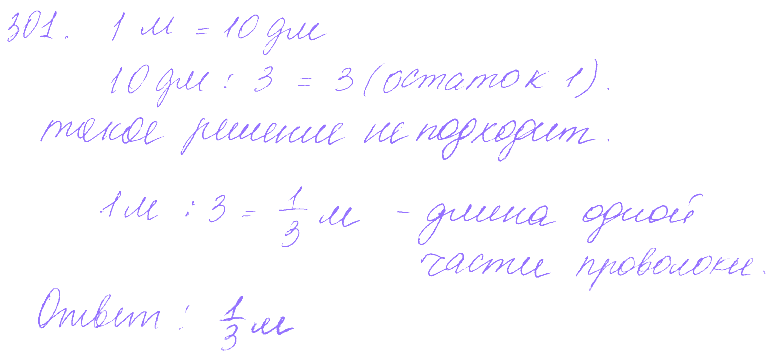 301. 1 м = 10 дм
10 дм : 3 = 3 (остаток 1).
такое решение не подходит.
1 м : 3 = 1/3 м - длина одной
части проволоки.
Ответ : 1/3 м